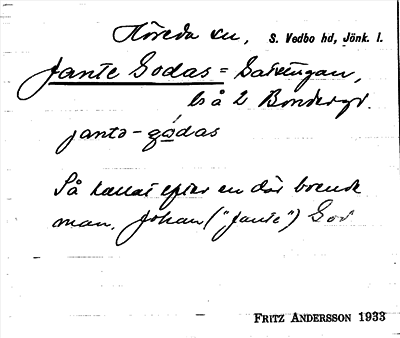 Höreda sn, S. Vedbo hd, Jönk. l.
Jante Godas =
bs å 2 Bondegr.
jantə-gódas
Så kallat efter en där boende
man, Johan ("Jante") God
FRITZ ANDERSSON 1933